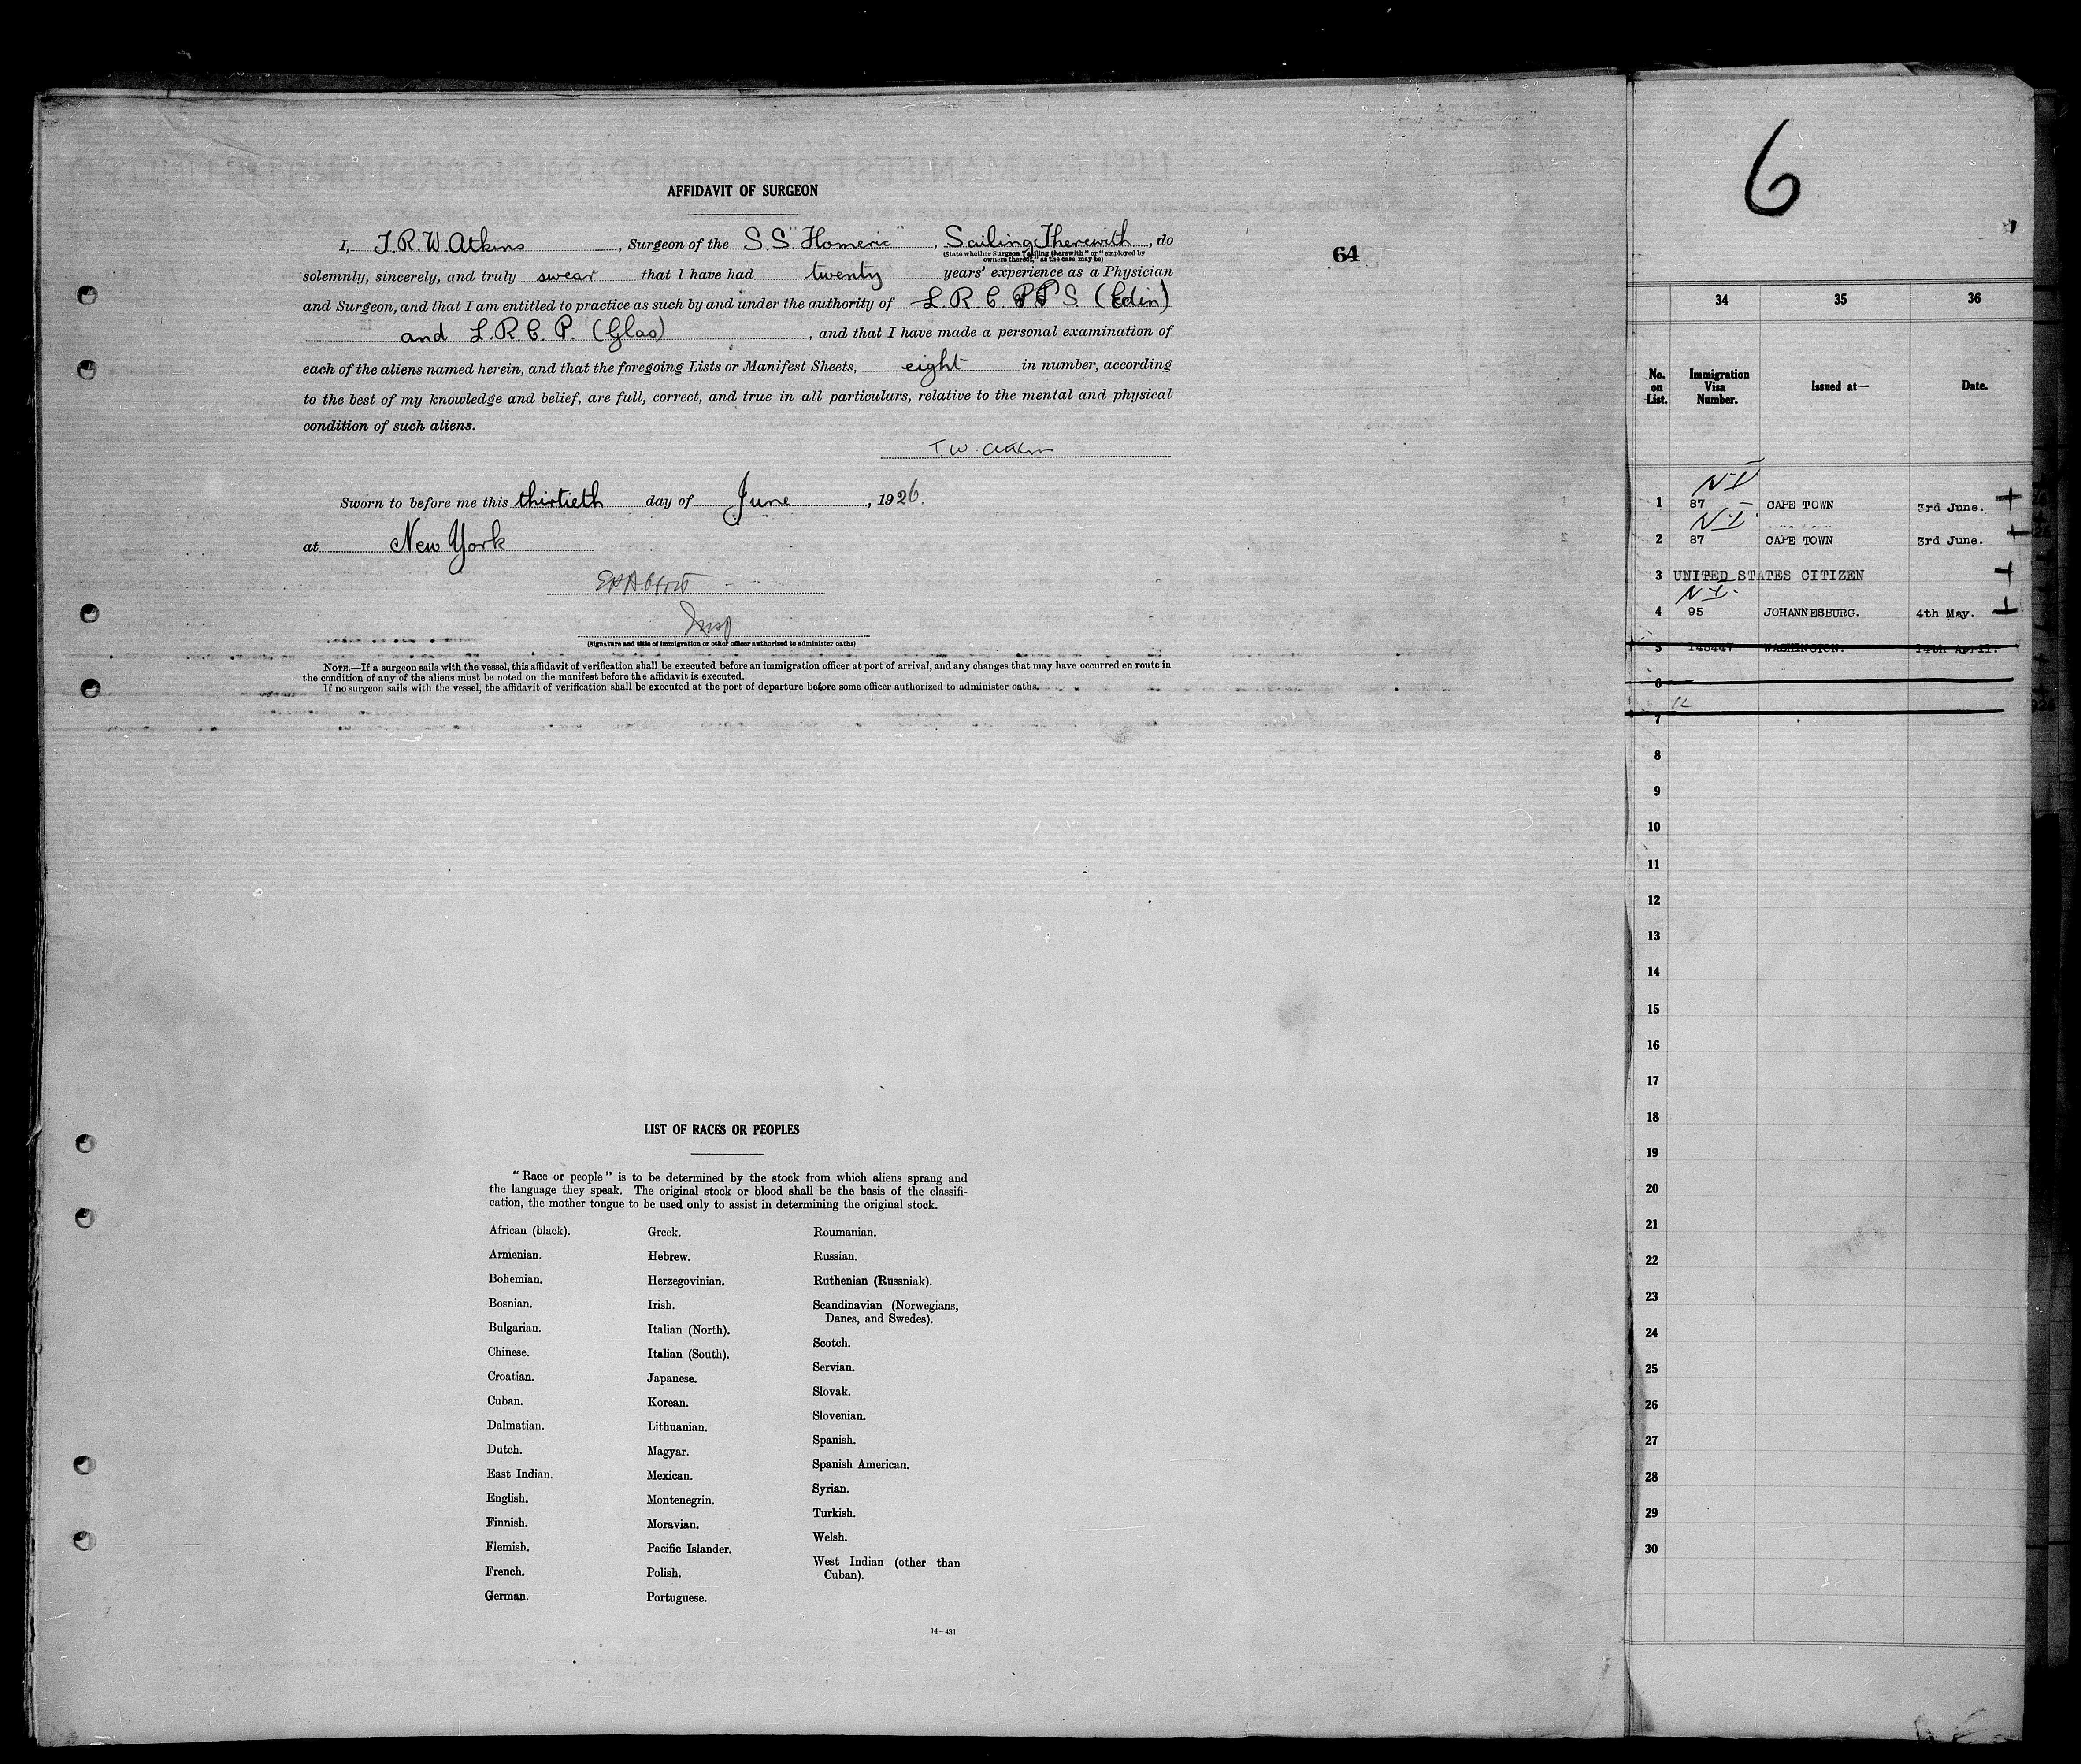 AFFIDAVIT OF SURGEON
I, T.R.W. Atkins, Surgeon of the S.S "Homeric", Sailing Therewith, do
(State whether Surgeon "sailing therewith" or "employed by
owners thereof," as the case may be)
solemnly, sincerely, and truly swear that I have had twenty years' experience as a Physician
and Surgeon, and that I am entitled to practice as such by and under the authority of L.R.C.P.P S. (Edin)
and L.R.C.P. (Glas), and that I have made a personal examination of
each of the aliens named herein, and that the foregoing Lists or Manifest Sheets, eight in number, according
to the best of my knowledge and belief, are full, correct, and true in all particulars, relative to the mental and physical
condition of such aliens.
T. W. Atkins
Sworn to before me this thirtieth day of June, 1926.
at New York
Insp
(Signature and title of immigration or other officer authorized to administer oaths)
NOTE.—If a surgeon sails with the vessel, this affidavit of verification shall be executed before an immigration officer at port of arrival, and any changes that may have occurred en route in
the condition of any of the aliens must be noted on the manifest before the affidavit is executed.
If no surgeon sails with the vessel, the affidavit of verification shall be executed at the port of departure before some officer authorized to administer oaths.
64
LIST OF RACES OR PEOPLES
"Race or people" is to be determined by the stock from which aliens sprang and
the language they speak. The original stock or blood shall be the basis of the classifi-
cation, the mother tongue to be used only to assist in determining the original stock.
African (black).
Armenian.
Bohemian.
Bosnian.
Bulgarian.
Chinese.
Croatian.
Cuban.
Dalmatian.
Dutch.
East Indian.
English.
Finnish.
Flemish.
French.
German.
Greek.
Hebrew.
Herzegovinian.
Irish.
Italian (North).
Italian (South).
Japanese.
Korean.
Lithuanian.
Magyar.
Mexican.
Montenegrin.
Moravian.
Pacific Islander.
Polish.
Portuguese.
Roumanian.
Russian.
Ruthenian (Russniak).
Scandinavian (Norwegians,
Danes, and Swedes).
Scotch.
Servian.
Slovak.
Slovenian.
Spanish.
Spanish American.
Syrian.
Turkish.
Welsh.
West Indian (other than
Cuban).
14-431
6
34 35 36
No.
on
List.
Immigration
Visa
Number.
Issued at—
Date.
N I
1 87 CAPE TOWN 3rd June.
N.I.
2 87 CAPE TOWN 3rd June.
3 UNITED STATES CITIZEN
N-I.
4 95 JOHANNESBURG. 4th May.
5 145447 WASHINGTON. 14th April.
6
7
8
9
10
11
12
13
14
15
16
17
18
19
20
21
22
23
24
25
26
27
28
29
30